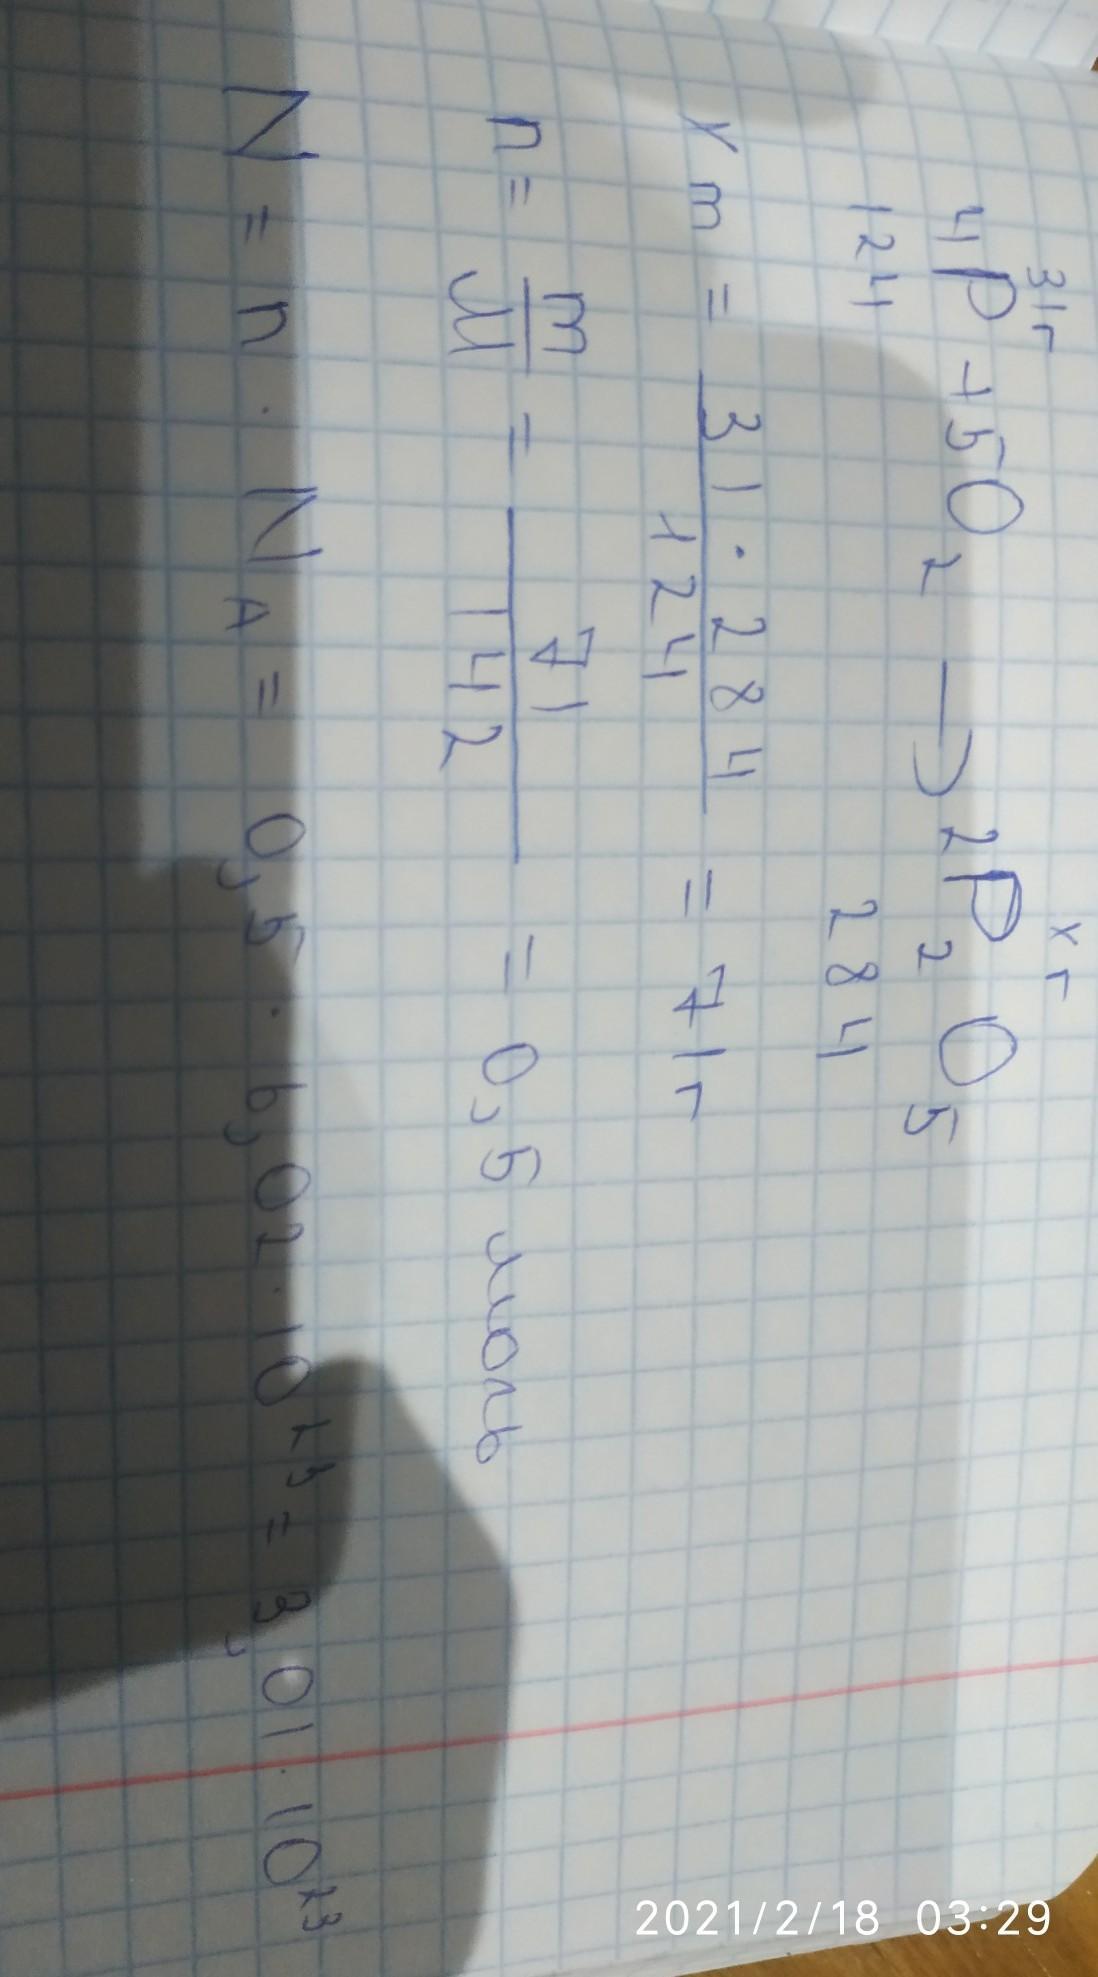 31г хг
4P + 5O₂ → 2P₂O₅
124 284
x m = 31 · 284 / 124 = 71г
n = m / M = 71 / 142 = 0,5 моль
N = n · N_A = 0,5 · 6,02 · 10²³ = 3,01 · 10²³
2021/2/18 03:29